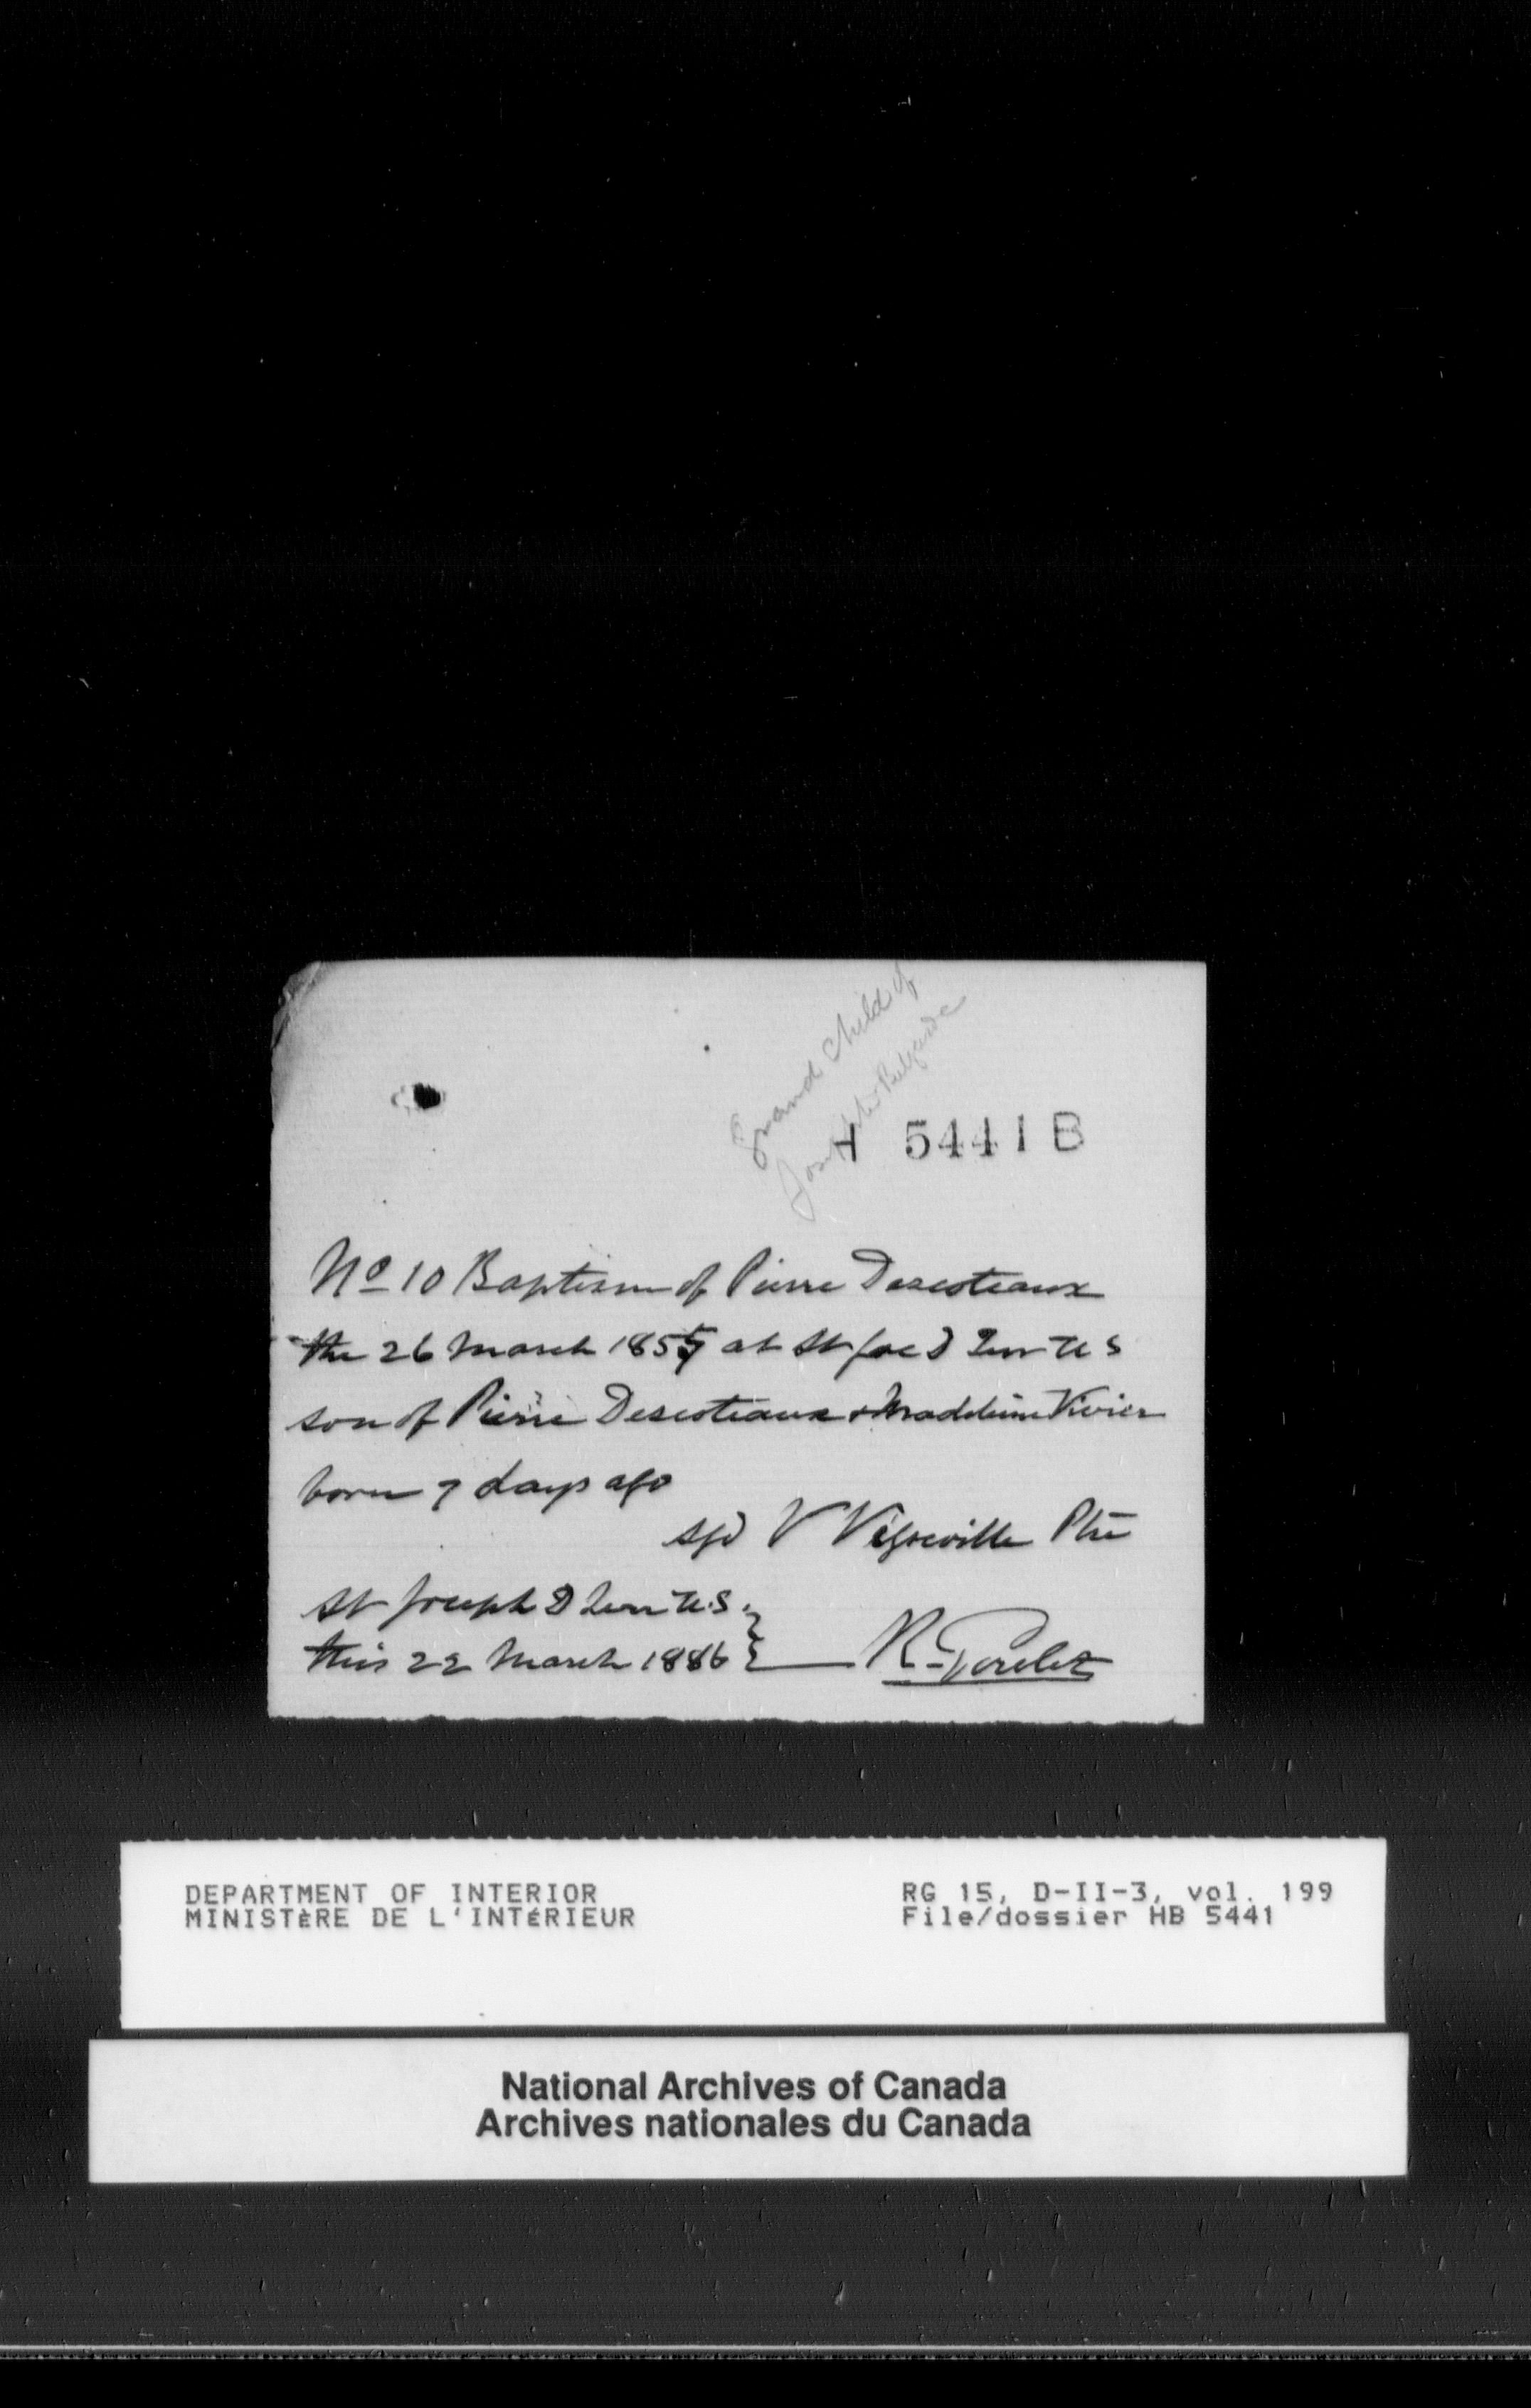 Grand child of
Joseph Belgarde
H 5441 B
No 10 Baptism of Pierre Descoteaux
the 26 March 1857 at St Joe D Terr U S
son of Pierre Descoteaux & Madeleine Vivier
born 7 days ago
sgd V Vegreville Ptre
St Joseph D Terr U.S.
this 22 March 1886
DEPARTMENT OF INTERIOR
MINISTÈRE DE L'INTÉRIEUR
RG 15, D-II-3, vol. 199
File/dossier HB 5441
National Archives of Canada
Archives nationales du Canada